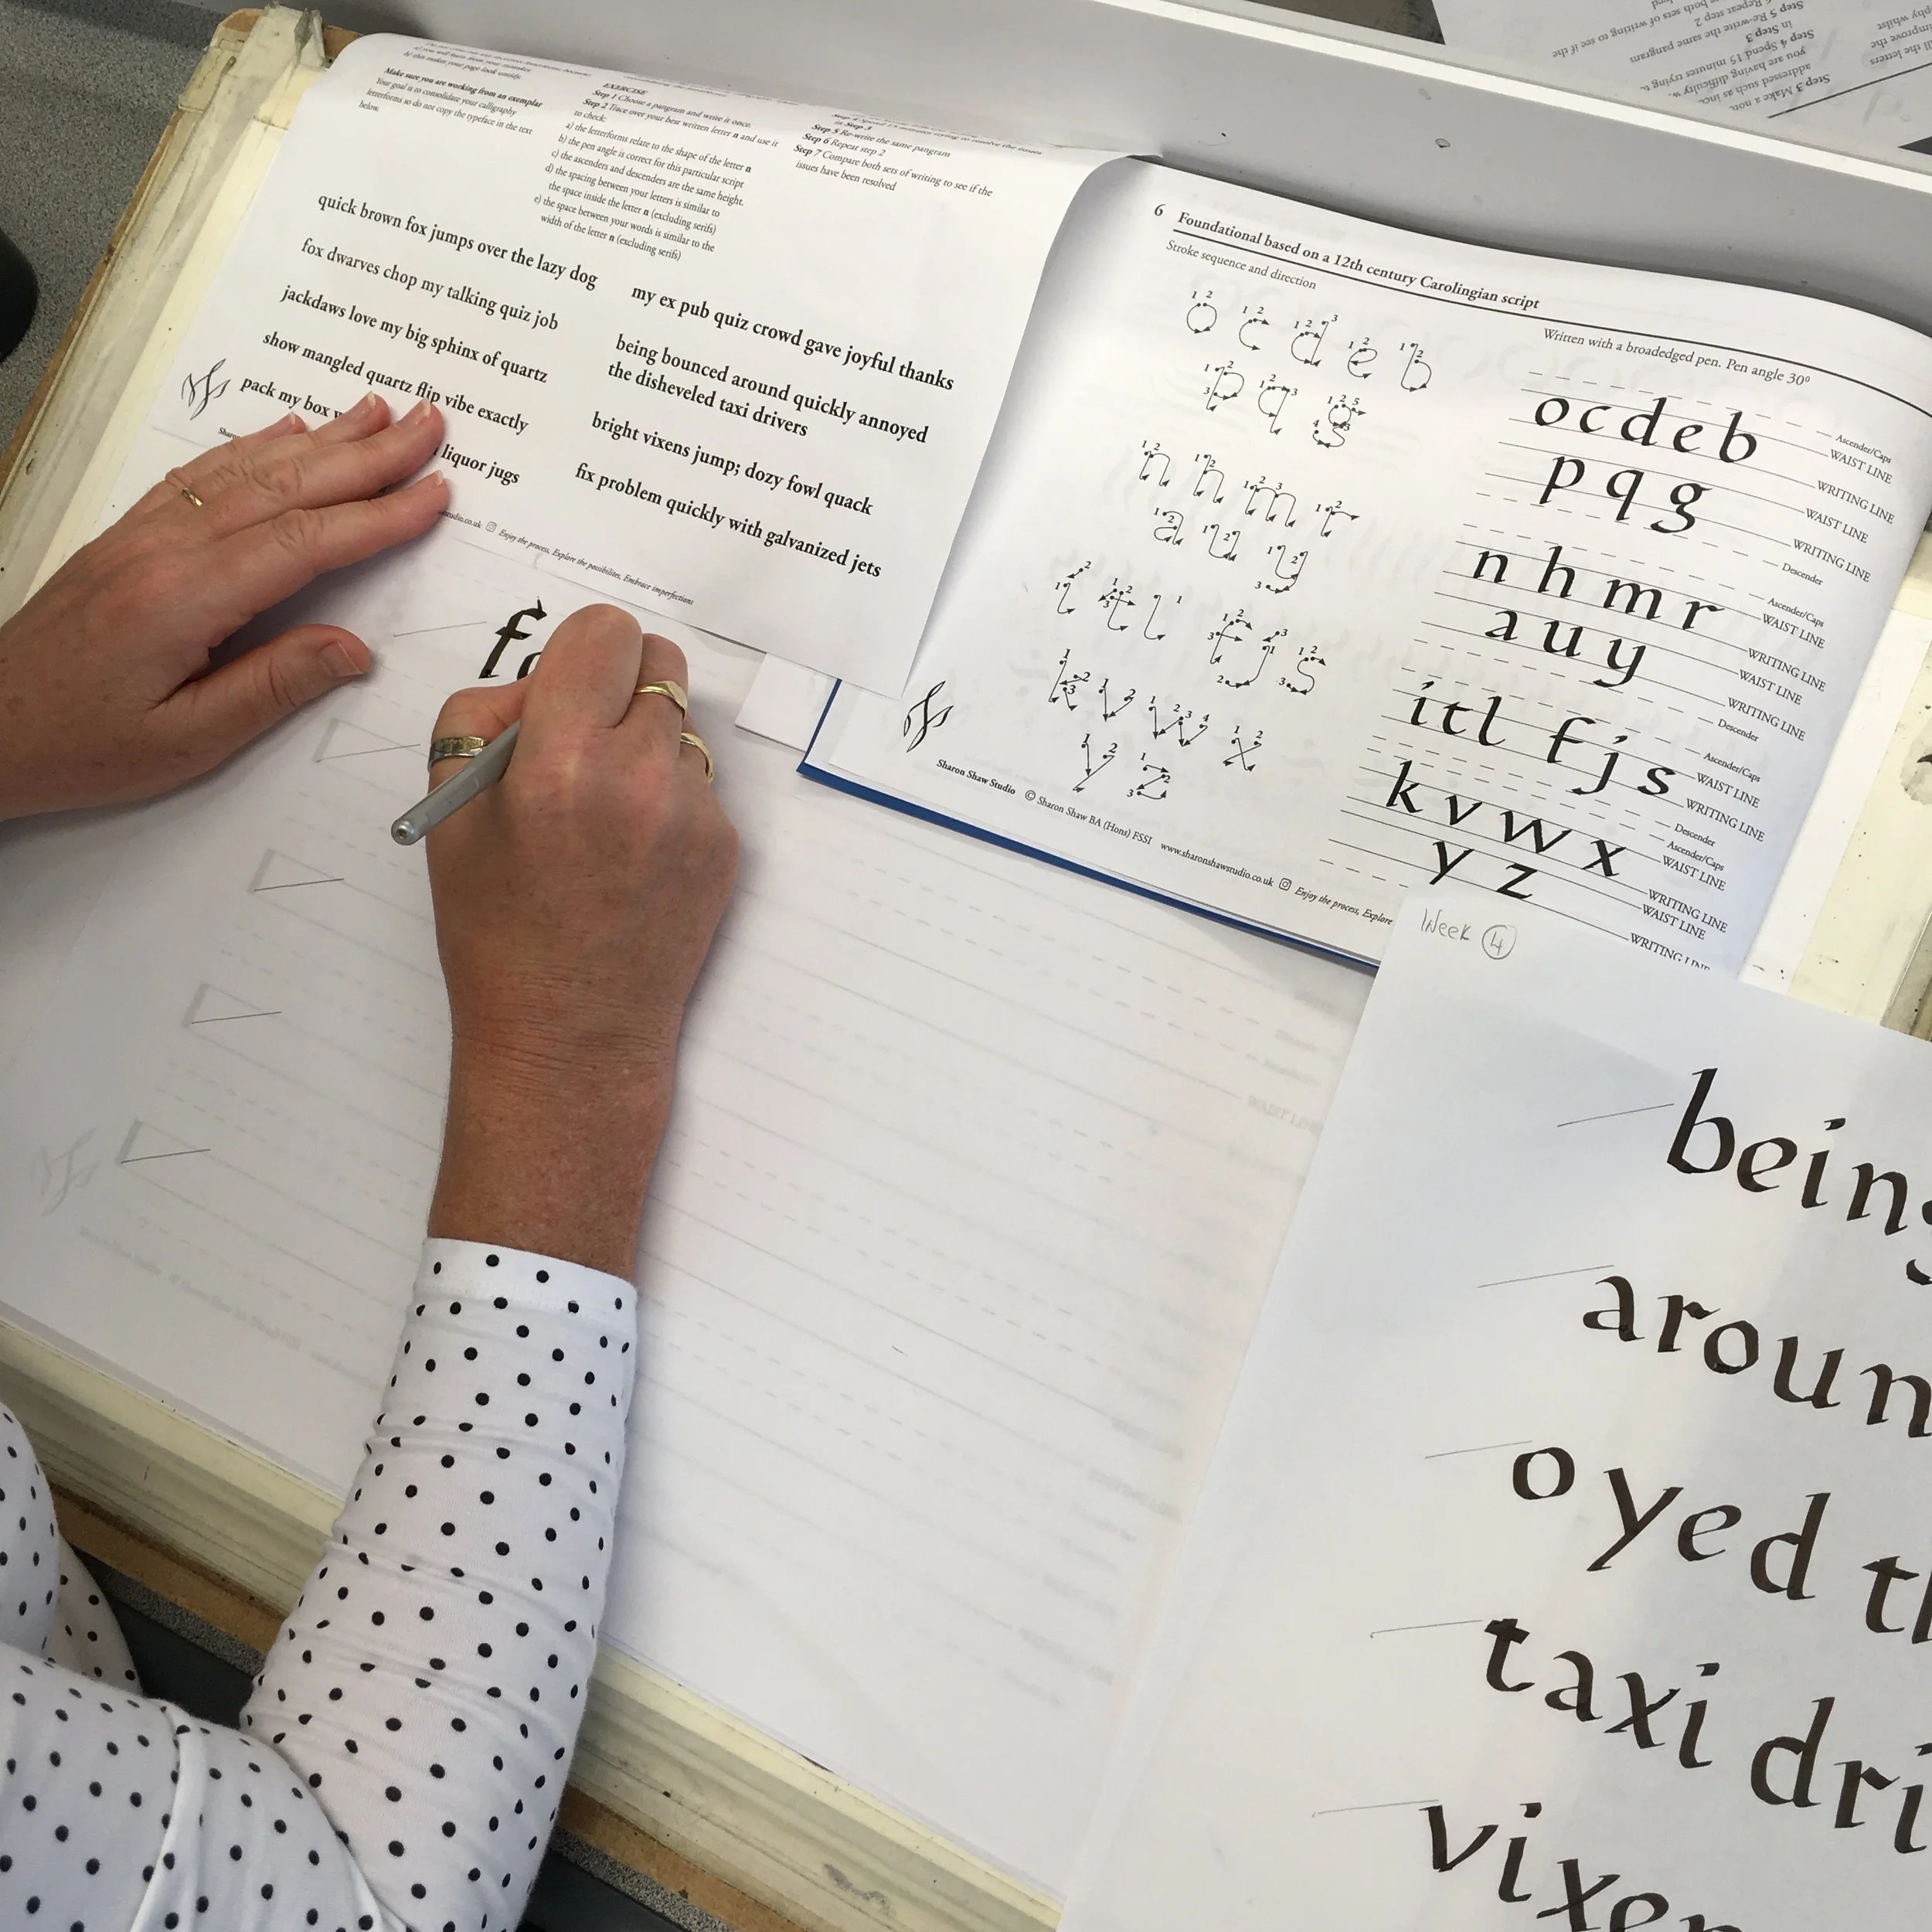 a) you will learn from your mistakes
b) this makes your page look untidy
Make sure you are working from an exemplar
Your goal is to consolidate your calligraphy
letterforms so do not copy the typeface in the text
below.
EXERCISE
Step 1 Choose a pangram and write it once.
Step 2 Trace over your best written letter n and use it
to check:
a) the letterforms relate to the shape of the letter n
b) the pen angle is correct for this particular script
c) the ascenders and descenders are the same height.
d) the spacing between your letters is similar to
the space inside the letter n (excluding serifs)
e) the space between your words is similar to the
width of the letter n (excluding serifs)
in Step 3
Step 5 Re-write the same pangram
Step 6 Repeat step 2
Step 7 Compare both sets of writing to see if the
issues have been resolved
quick brown fox jumps over the lazy dog
fox dwarves chop my talking quiz job
jackdaws love my big sphinx of quartz
show mangled quartz flip vibe exactly
pack my box
liquor jugs
my ex pub quiz crowd gave joyful thanks
being bounced around quickly annoyed
the disheveled taxi drivers
bright vixens jump; dozy fowl quack
fix problem quickly with galvanized jets
Enjoy the process, Explore the possibilites, Embrace imperfections
fo
6 Foundational based on a 12th century Carolingian script
Stroke sequence and direction
Written with a broadedged pen. Pen angle 30º
1 2 1 2 1 2 3 1 2 1 2
o c d e b
p q g
n h m r
a u y
i t l f j s
k v w x
y z
Ascender/Caps
WAIST LINE
WRITING LINE
WAIST LINE
WRITING LINE
Descender
Ascender/Caps
WAIST LINE
WRITING LINE
WAIST LINE
WRITING LINE
Descender
Ascender/Caps
WAIST LINE
WRITING LINE
Descender
Ascender/Caps
WAIST LINE
WRITING LINE
WAIST LINE
WRITING LINE
Sharon Shaw Studio © Sharon Shaw BA (Hons) FSSI www.sharonshawstudio.co.uk Enjoy the process, Explore
Week 4
being
aroun
oyed th
taxi dri
vixen
Step 3 Make a note
addressed such as
you are having difficulty
Step 4 Spend 15 minutes trying
in Step 3
Step 5 Re-write the same pangram
Step 6 Repeat step 2
both sets of writing to see if the